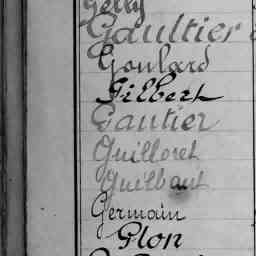 Gelly
Gaultier
Goulard
Gilbert
Gautier
Guilloret
Guilbaut
Germain
Glon